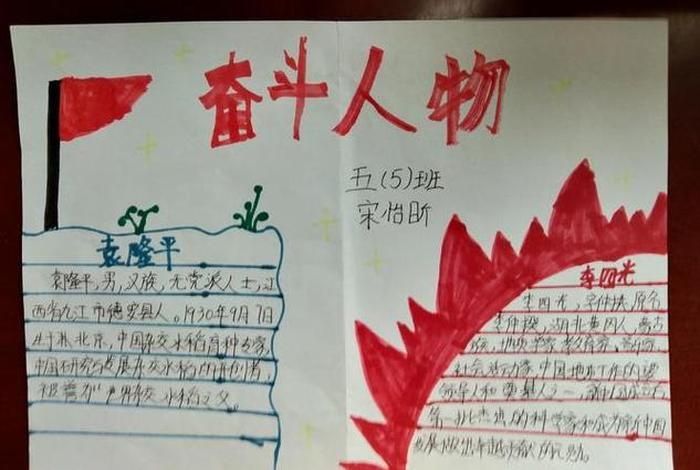 奋斗人物
五(5)班
宋怡昕
袁隆平
袁隆平,男,汉族,无党派人士,江
西省九江市德安县人。1930年9月7日
生于北京,中国杂交水稻育种专家,
中国研究与发展杂交水稻的开创者,
被誉为"世界杂交水稻之父。
李四光
李四光,字仲拱,原名
李仲揆,湖北黄冈人,蒙古
族,地质学家,教育家,音乐家,
社会活动家,中国地质力学的
领导人和奠基人之一,新中国成立后
第一批杰出的科学家和成为新中国
发展做出卓越贡献的元勋。